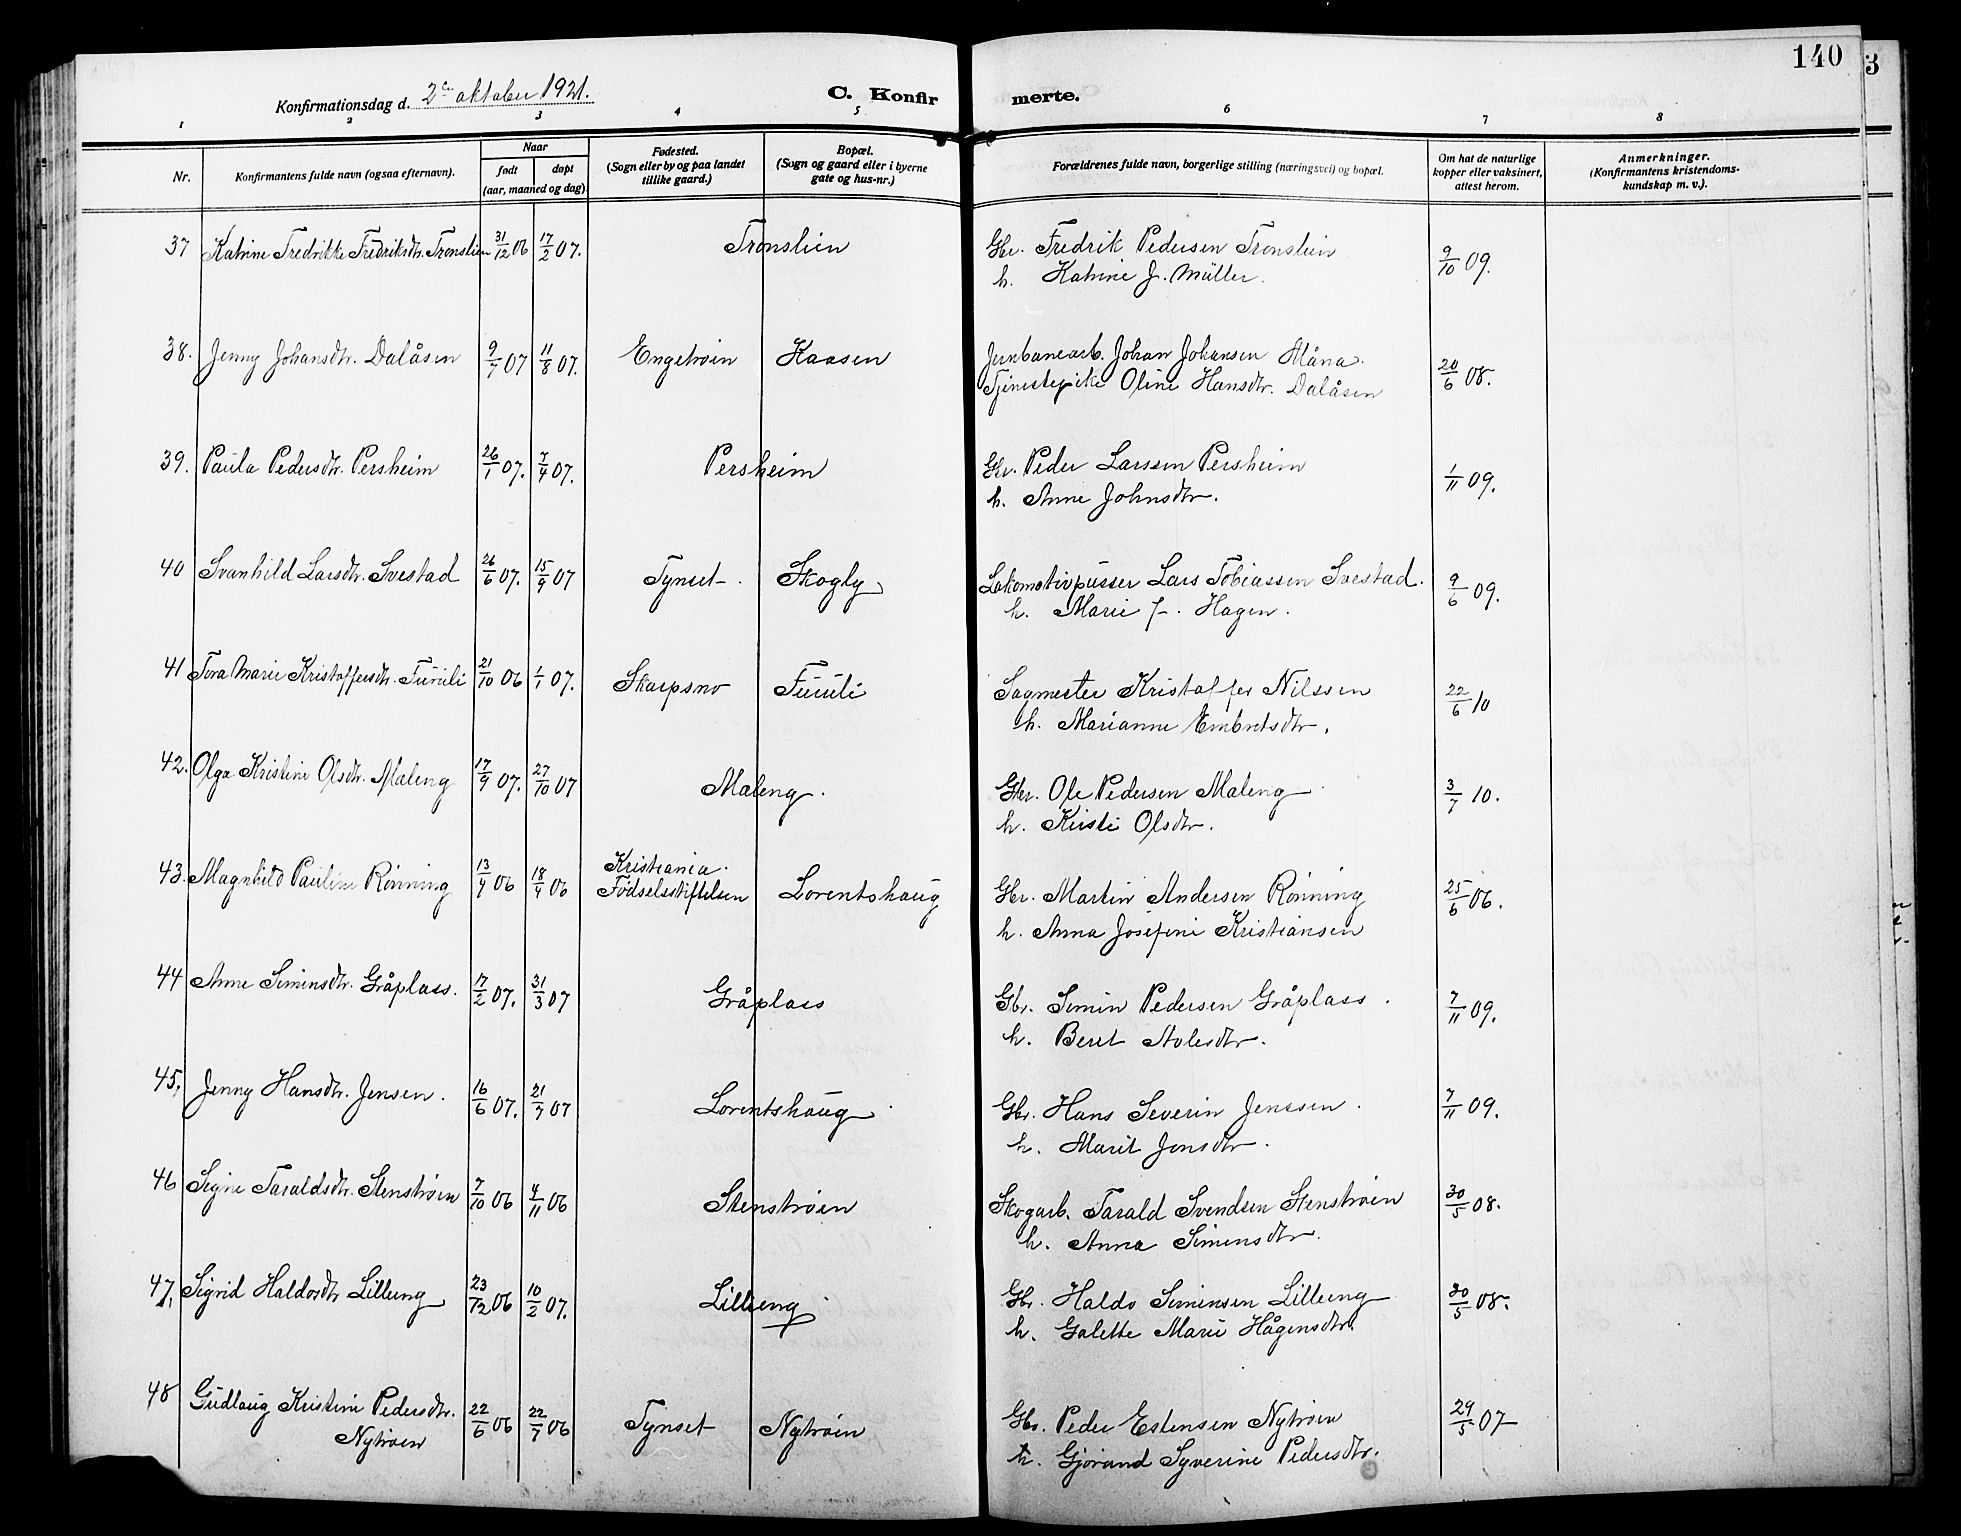 140
3
Konfirmationsdag d. 2en oktober 1921.
C. Konfirmerte.
1 2 3 4 5 6 7 8
Nr. Konfirmantens fulde navn (ogsaa efternavn). Naar født døpt (aar, maaned og dag). Fødested. (Sogn eller by og paa landet tillike gaard.) Bopæl. (Sogn og gaard eller i byerne gate og hus-nr.) Forældrenes fulde navn, borgerlige stilling (næringsvei) og bopæl. Om hat de naturlige kopper eller vaksinert, attest herom. Anmerkninger. (Konfirmantens kristendoms-kundskap m. v.).
37 Katrine Fredrikke Fredriksdtr. Tronslien 31/12 06 17/2 07. Tronslien Gbr. Fredrik Pedersen Tronslien 9/10 09.
h. Katrine J. Müller.
38. Jenny Johansdtr. Dalåsen 9/7 07 11/8 07. Engetrøin Kaasen Jernbanearb. Johan Johansen Måna. 20/6 08.
Tjenestepike Oline Hansdtr. Dalåsen
39. Paula Pedersdtr. Persheim 26/1 07. 7/4 07. Persheim Gbr. Peder Larssen Persheim 1/11 09.
h. Anne Johnsdtr.
40 Svanhild Larsdtr. Svestad 26/6 07. 15/9 07 Tynset Skogly Lokomotivpusser Lars Tobiassen Svestad. 9/6 09.
h. Marie f. Hagen.
41 Tora Marie Kristoffersdtr. Furuli 21/10 06 1/1 07. Skarpsno Furuli Sagmester Kristoffer Nilssen 22/6 10
h. Marianne Embretsdtr.
42. Olga Kristine Olsdtr. Maleng 17/9 07. 27/10 07 Maleng. Gbr. Ole Pedersen Maleng 3/7 10.
h. Kristi Olsdtr.
43. Magnhild Pauline Rønning 13/4 06 18/4 06 Kristiania. Fødselsstiftelsen Lorentshaug Gbr. Martin Andersen Rønning 25/6 06.
h. Anna Josefine Kristiansen
44 Anne Simensdtr. Gråplass. 17/2 07. 31/3 07 Gråplass Gbr. Simen Pedersen Gråplass. 7/11 09.
h. Beret Avlesdtr.
45. Jenny Hansdtr. Jensen. 16/6 07. 21/7 07 Lorentshaug Gbr. Hans Severin Jenssen. 7/11 09.
h. Marit Jonsdtr.
46 Signe Taraldsdtr. Stenstrøen 7/10 06 4/11 06 Stenstrøen Skogarb. Tarald Svendsen Stenstrøen 30/5 08.
h. Anna Simensdtr.
47. Sigrid Haldosdtr Lilleeng 23/12 06 10/2 07. Lilleeng Gbr. Haldo Simensen Lilleeng 30/5 08.
h. Galette Marie Hågensdtr.
48 Gudlaug Kristine Pedersdtr. Nytrøen 22/6 06 22/7 06 Tynset Nytrøen Gbr. Peder Estensen Nytrøen 29/5 07
h. Gjørand Syverine Pedersdtr.